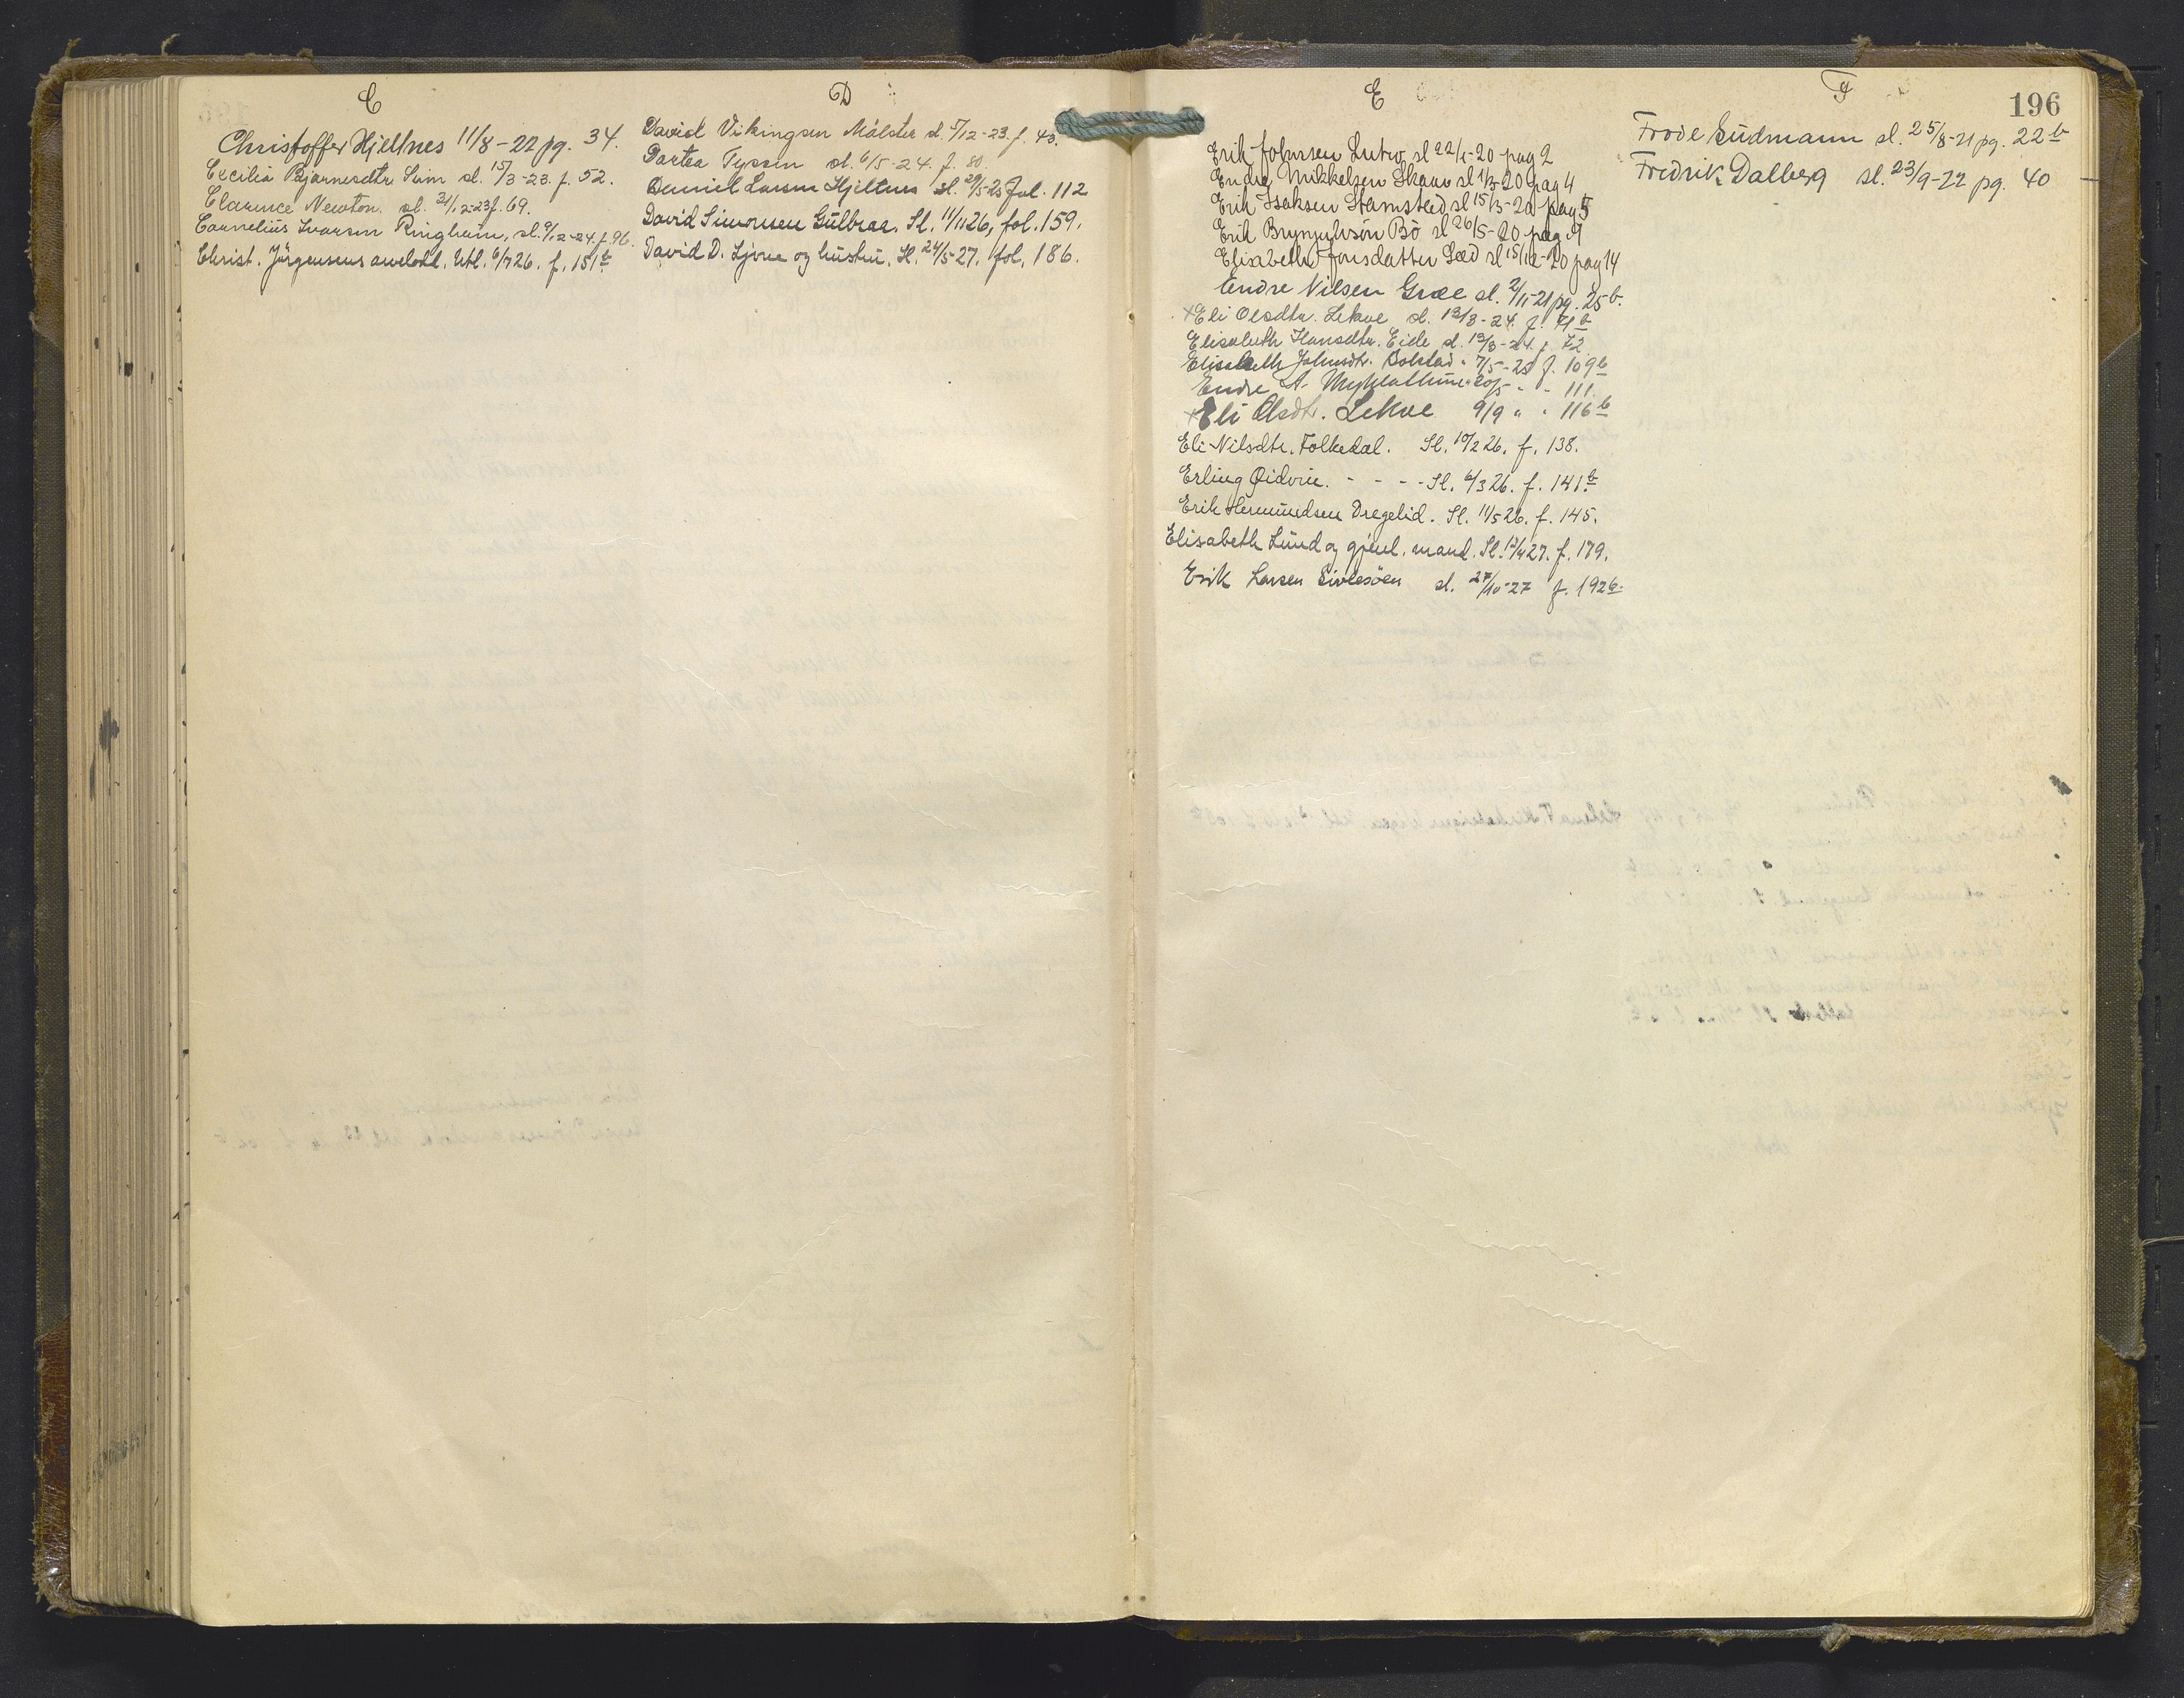 C
Christoffer Hjeltnes 11/8-22 pg. 34.
Cecilia Bjarnesdtr Seim sl. 15/3-23. f. 52.
Clarence Newton. sl. 31/12-23 f. 69.
Cornelius Ivarsen Ringheim, sl. 9/12-24. f. 96.
Christ. Jörgensens Utl. 6/7 26. f. 151b
D
David Vikingsen Mölster sl. 5/12-23. f. 43.
Dortea Tyssen sl. 6/5-24. f. 80.
Daniel Larsen Hjeltnes sl. 29/5-25 fol. 112
David Simonsen Gulbraa. Sl. 11/11 26, fol. 159.
David D. Ljone og hustru. Sl. 24/5-27. fol. 186.
E
Erik Johnsen Lutro sl 22/1-20 pag 2
Endre Mikkelsen Skaar sl 1/3-20 pag 4
Erik Isaksen Hamsted sl 15/3-20 pag 5
Erik Brynjulvsön Bö sl 26/5-20 pag 9
Elisabeth Jonsdatter Sæd sl 15/12-20 pag 14
Endre Nilsen Græe sl. 2/11-21 pg. 25b.
x Eli Olsdtr. Lekve sl. 13/3-24. f. 71b
Elisabeth Hansdtr. Eide sl. 13/3-24. f 72
Elisabeth Johnsdtr. Bolstad " 7/5-25 f. 109b
Endre A. Myklathun " 20/5 " - 111.
x Eli Olsdtr. Lekve 9/9 " " 116b
Eli Nilsdtr. Folkedal. Sl. 10/2 26. f. 138.
Erling Öidvin. - - - - Sl. 6/3 26. f. 141b
Erik Hermundsen Dregelid. Sl. 11/5 26. f. 145.
Elisabeth Lund og gjenl. mand. Sl. 12/4 27. f. 179.
Erik Larsen sl. 27/10-27 f. 192b
F
196
Frode Gudmann sl. 25/8-21 pg. 22b
Fredrik Dalberg sl. 23/9-22 pg. 40